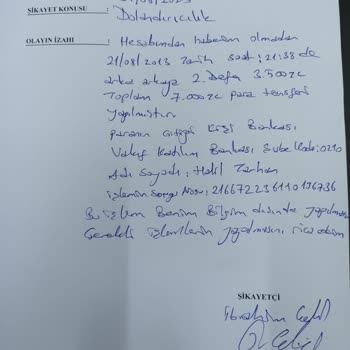 ŞİKAYET KONUSU :
Dolandırıcılık
OLAYIN İZAHI : Hesabımdan haberim olmadan
21/08/2013 Tarih saat: 21:38 de
arka arkaya 2. Defa 3.500 TL
Toplam 7.000 TL para transferi
yapılmıştır
paranın Gittiği Kişi Bankası
Vakıf Katılım Bankası Şube Kodu: 0210
Adı Soyadı: Halil
işlemin sorgu No su: 2166722361101
Bu işlem Benim Bilgim dışında yapılmıştır
Gerekli işlemlerin yapılmasını rica ederim
ŞİKAYETÇİ
İbrahim